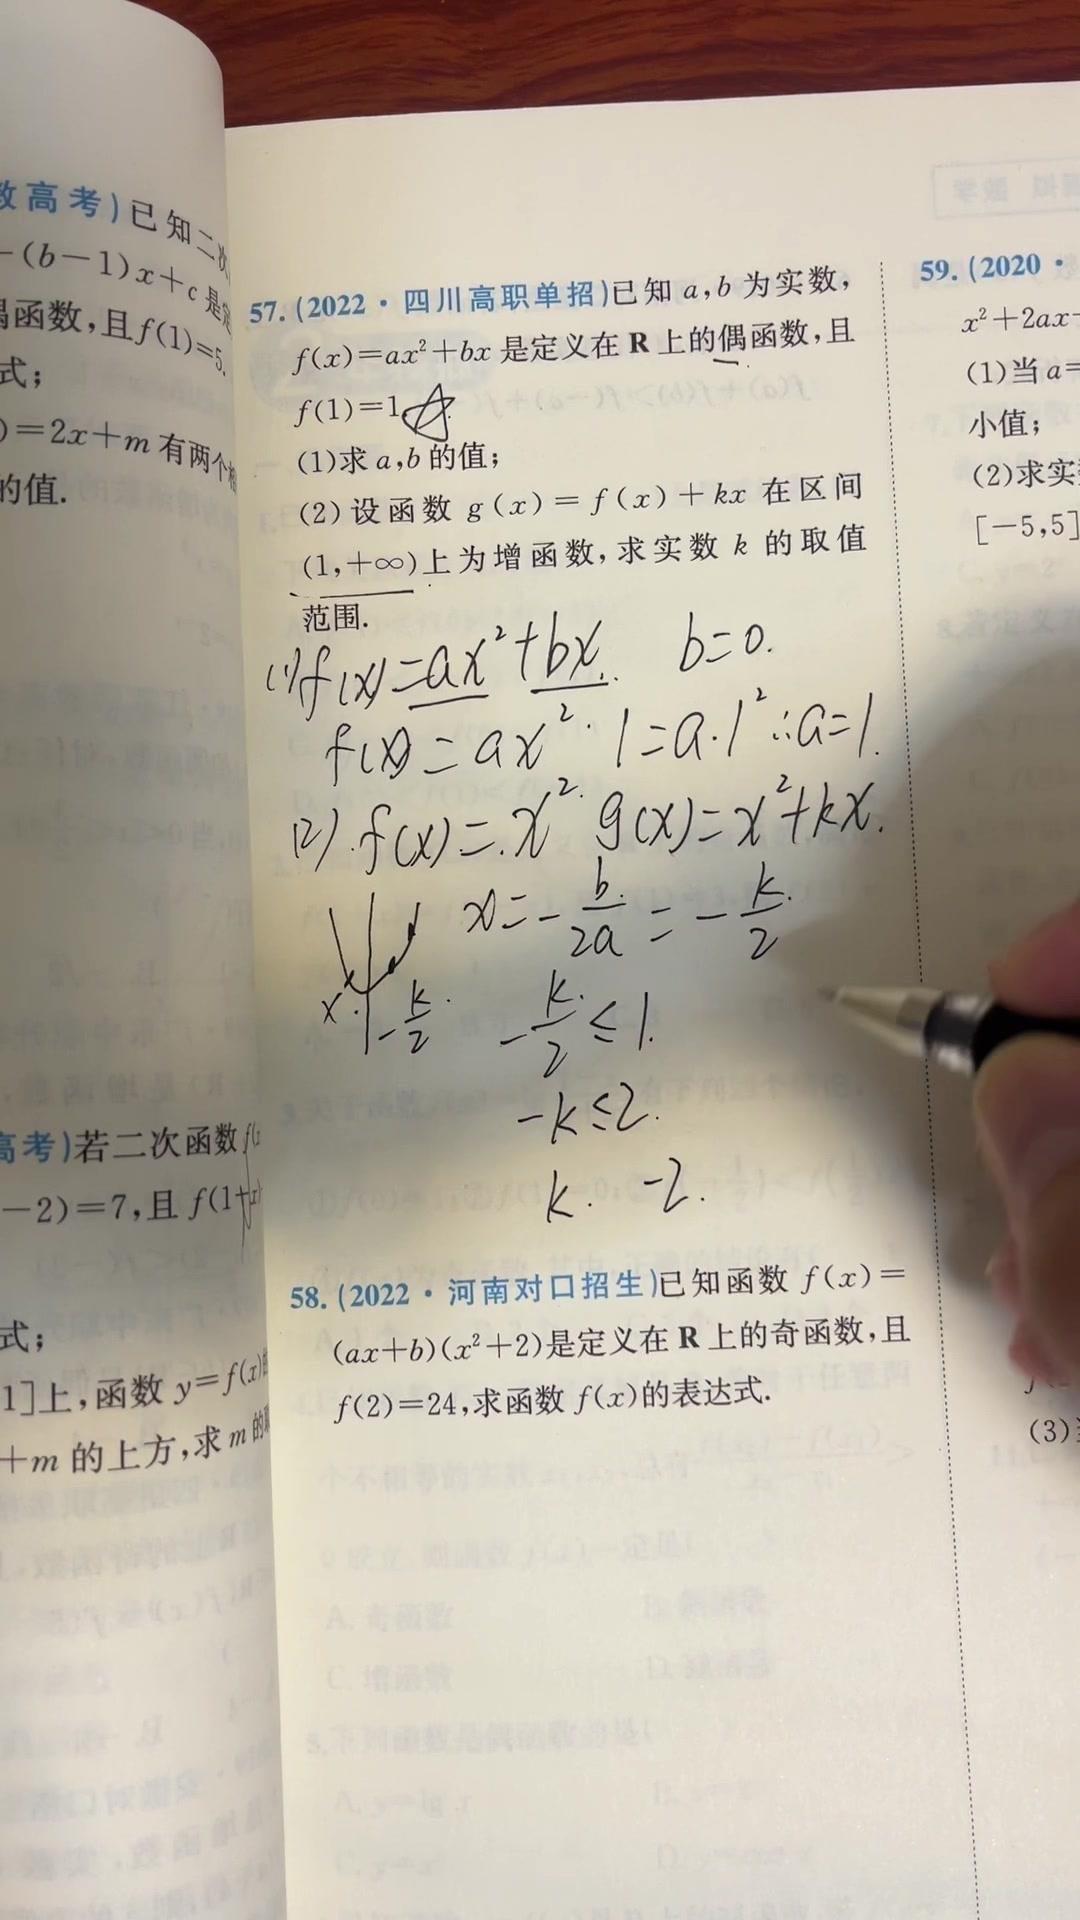 数高考)已知二次
-(b-1)x+c是定
偶函数,且f(1)=5.
式;
)=2x+m有两个
的值.
高考)若二次函数f(
-2)=7,且f(1+x)
式;
1]上,函数y=f(x)的
+m的上方,求m的
57.(2022·四川高职单招)已知a,b为实数,
f(x)=ax²+bx是定义在R上的偶函数,且
f(1)=1.
(1)求a,b的值;
(2)设函数g(x)=f(x)+kx在区间
(1,+∞)上为增函数,求实数k的取值
范围.
(1)f(x)=ax²+bx. b=0.
f(x)=ax². 1=a·1² ∴a=1.
(2).f(x)=x². g(x)=x²+kx.
x=-b/2a=-k/2
x -k/2. -k/2≤1.
-k≤2.
k. -2.
58.(2022·河南对口招生)已知函数f(x)=
(ax+b)(x²+2)是定义在R上的奇函数,且
f(2)=24,求函数f(x)的表达式.
59.(2020·
x²+2ax
(1)当a=
小值;
(2)求实
[-5,5]
(3)